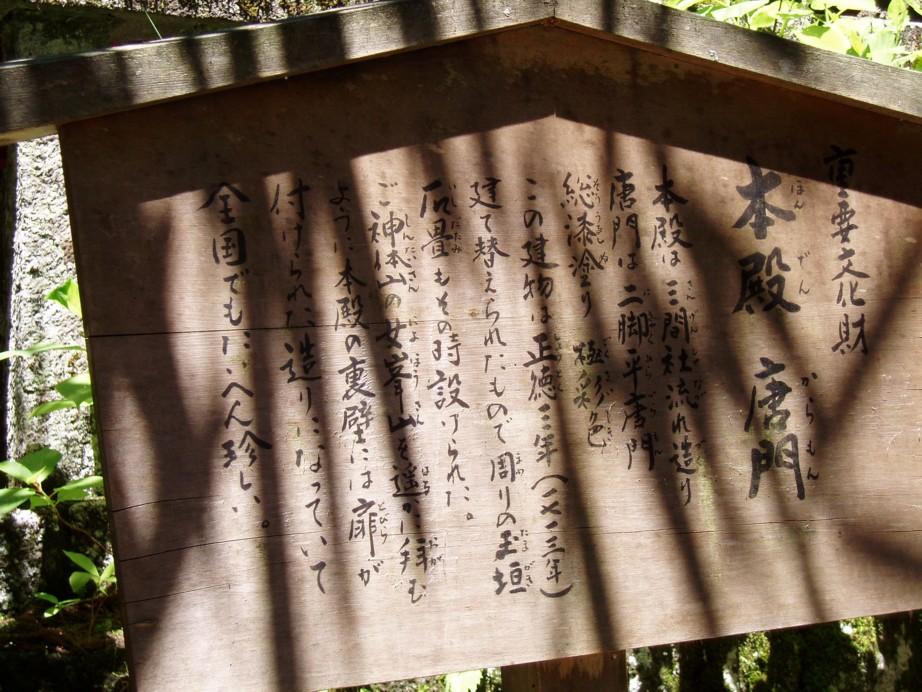 重要文化財
本殿 唐門
本殿は三間社流れ造り
唐門は二脚平唐門
総漆塗り 極彩色
この建物は正徳三年(一七一三年)
建て替えられたもので周りの玉垣
石畳もその時設けられた。
ご神体山の女峯山を遥かに拝む
ように本殿の裏壁には扉が
付けられた造りになっていて
全国でもたいへん珍しい。